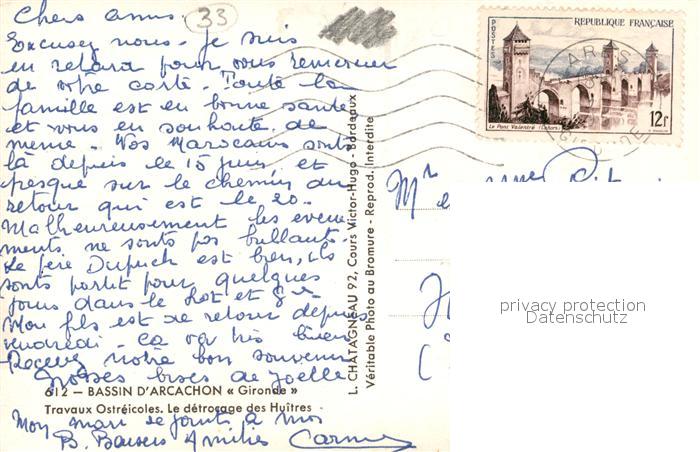 Chers amis.
33
Excusez nous. Je suis
en retard pour vous remercier
de votre carte. Toute la
famille est en bonne santé
et vous en souhaite de
meme. Nos Marocains sont
là depuis le 15 juin et
presque sur le chemin du
retour qui est le 20.
Malheureusement les évene
ments ne sont pas brillants.
Le père Dupuch est bien, ils
sont partit pour quelques
jours dans le Lot et
Mon fils est de retour depuis
vendredi. Ca va très bien
Recevez notre bon souvenir
Grosses bises de Joelle
612 — BASSIN D'ARCACHON « Gironde »
Travaux Ostréicoles. Le détroçage des Huîtres
Mon mari se joint à moi
B. Baisers Amitiés
L. CHATAGNEAU 92, Cours Victor-Hugo - Bordeaux
Véritable Photo au Bromure - Reprod. Interdite
POSTES
REPUBLIQUE FRANÇAISE
Le Pont Valentré (Cahors)
12f
Mr
privacy protection
Datenschutz